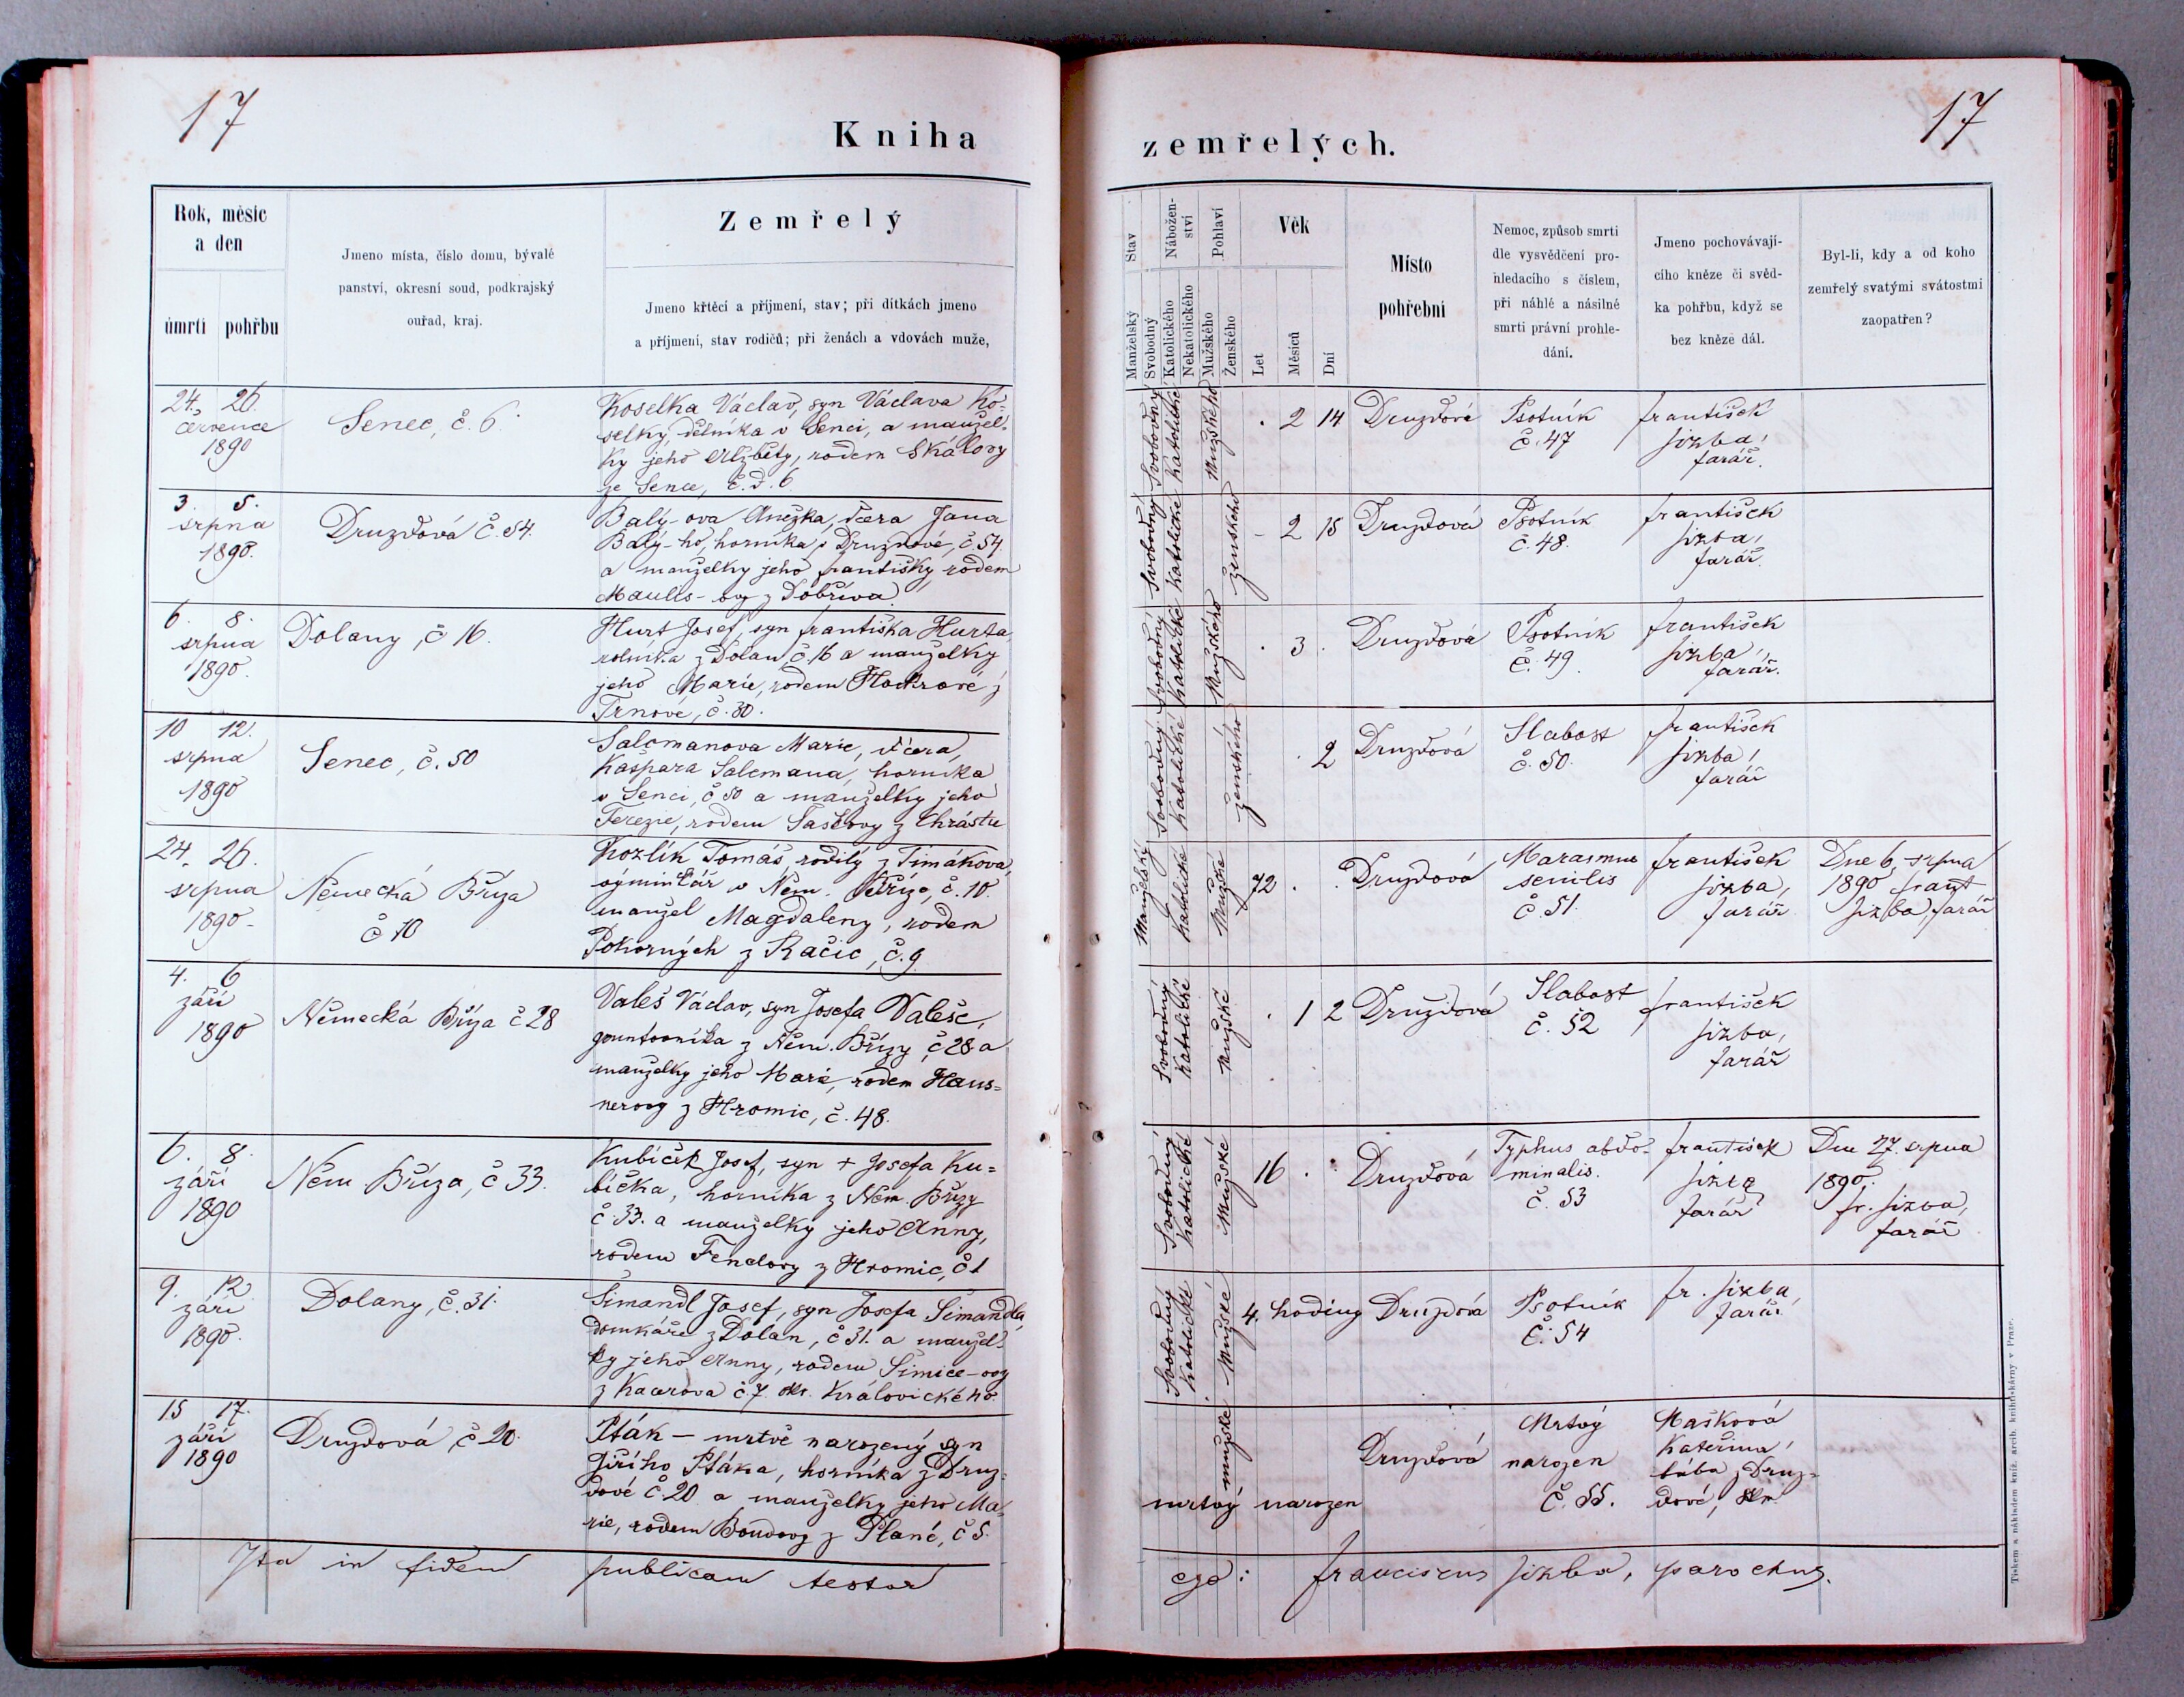 17
Kniha
Rok, měsíc
a den
úmrtí pohřbu
Jmeno místa, číslo domu, bývalé
panství, okresní soud, podkrajský
ouřad, kraj.
Zemřelý
Jmeno křtěcí a příjmení, stav; při dítkách jmeno
a příjmení, stav rodičů; při ženách a vdovách muže,
24. 26.
července
1890
Senec, č. 6.
Koselka Václav, syn Václava Ko=
selky, dělníka v Senci, a manžel=
ky jeho Alžběty, rodem Skálovy
ze Sence, č. d. 6
3. 5.
srpna
1890.
Druzdová č. 54.
Balý-ova Anežka, dcera Jana
Balý-ho, horníka z Druzdové, č. 54.
a manželky jeho Františky rodem
Maulis-ovy z Dobříva
6. 8.
srpna
1890.
Dolany, č 16.
Hurt Josef, syn Františka Hurta,
rolníka z Dolan č. 16 a manželky
jeho Marie, rodem Hodrové z
Trnové, č. 30.
10 12.
srpna
1890
Senec, č. 50
Salcmanova Marie, dcera,
Kašpara Salcmana, horníka
v Senci, č 50 a manželky jeho
Terezie, rodem Saskovy z Chrástu
24. 26.
srpna
1890-
Německá Bříza
č 10
Kozlík Tomáš, rodilý z Timákova,
výminkář v Něm. Bříze, č. 10.
manžel Magdaleny, rodem
Pokorných z Kačic, č. 9
4. 6
září
1890
Německá Bříza č 28
Valeš Václav, syn Josefa Valeše,
gruntovníka z Něm. Břízy č 28 a
manželky jeho Marie, rodem Haus=
nerovy z Hromic, č. 48.
6. 8.
září
1890
Něm Bříza, č 33.
Kubíček Josef, syn + Josefa Ku=
bíčka, horníka z Něm. Břízy
č. 33. a manželky jeho Anny,
rodem Fenclovy z Hromic, č 1
9. 12
září
1890.
Dolany, č. 31.
Šimandl Josef, syn Josefa Šimandla,
domkáře z Dolan, č 31. a manžel=
ky jeho Anny, rodem Šimice-ovy
z Kacerova č. 7. okr. Královického
15 17.
září
1890
Druzdová, č 20.
Pták — mrtvě narozený syn
Jiřího Ptáka, horníka z Druz=
dové č. 20 a manželky jeho Ma=
rie, rodem Boudovy z Plané, č 5.
Ita in fidem publicam testor
17
zemřelých.
Stav
Manželský
Svobodný
Nábožen-
ství
Katolického
Nekatolického
Pohlaví
Mužského
Ženského
Věk
Let
Měsíců
Dní
Místo
pohřební
Nemoc, způsob smrti
dle vysvědčení pro-
hledacího s číslem,
při náhlé a násilné
smrti právní prohle-
dání.
Jmeno pochovávají-
cího kněze či svěd-
ka pohřbu, když se
bez kněze dál.
Byl-li, kdy a od koho
zemřelý svatými svátostmi
zaopatřen?
Svobodný Katolické Mužského . 2 14 Druzdová Psotník František
č. 47 Jizba,
farář.
Svobodný Katolické ženského - 2 15 Druzdová Psotník František
č. 48. Jizba,
farář.
Svobodný Katolické Mužského . 3 . Druzdová Psotník František
č. 49. Jizba,
farář.
Svobodný Katolické ženského . 2 Druzdová Slabost František
č. 50. Jizba,
farář
Manželský katolické Mužské 72 . . Druzdová Marasmus František Dne 6 srpna
senilis Jizba, 1890 Frant
č. 51. farář Jizba, farář
Svobodný Katolické Mužské . 1 2 Druzdová Slabost František
č. 52 Jizba,
farář
Svobodný Katolické Mužské 16 . . Druzdová Typhus abdo- František Dne 27. srpna
minalis. Jizba 1890.
č. 53 farář fr. Jizba,
farář
Svobodný Katolické Mužské 4. hodiny Druzdová Psotník fr. Jizba,
č. 54 farář
mužské Druzdová Mrtvý Mašková
narozen Kateřina,
mrtvý narozen č. 55. bába z Druz=
dové,
ego: Franciscus Jizba, parochus.
Tiskem a nákladem kníž. arcib. knihtiskárny v Praze.